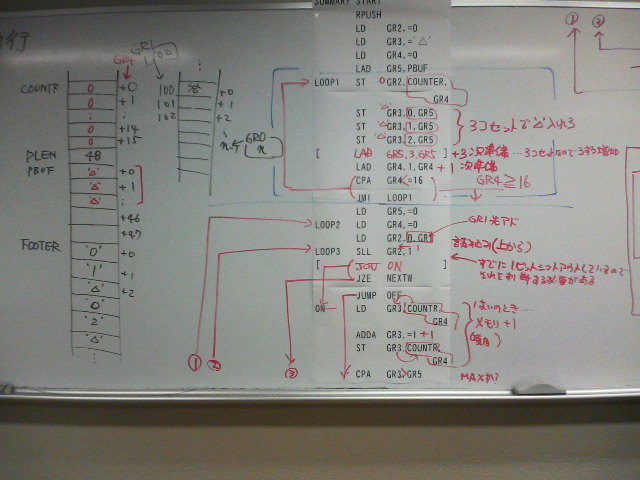 SUMMARY START
RPUSH
LD GR2,=0
LD GR3,='△'
LD GR4,=0
LAD GR5,PBUF
LOOP1 ST 0 GR2,COUNTER,
GR4
ST '△' GR3,0,GR5
ST '△' GR3,1,GR5
ST '△' GR3,2,GR5
3コセットで'△'入れる
[ LAD GR5,3,GR5 ] +3 次準備…3コセットなので3ずつ増加
LAD GR4,1,GR4 +1 次準備
CPA GR4<=16
GR4≧16
JMI LOOP1
LD GR5,=0
LOOP2 LD GR4,=0
LD GR2,0,GR1
GR1先アド
LOOP3 SLL GR2,1
[ JOV ON ]
すでに1ビットシフトアウトしているので
それを判断する必要がある
JZE NEXTW
JUMP OFF
ON LD GR3,COUNTR,
GR4
ADDA GR3,=1 +1
ST GR3,COUNTR,
GR4
1ぱいのとき…
メモリ+1
CPA GR3>GR5
MAXか?
GR4
GR1
100
COUNTR 0 +0
0 +1
0
0 +14
0 +15
PLEN 48
PBUF '△' +0
'△' +1
'△'
+46
+47
FOOTER '0' +0
'1' +1
'△' +2
'0'
'2'
'△'
100 +0
101 +1
102 +2
n
GR0
n
①
②
③
①
②